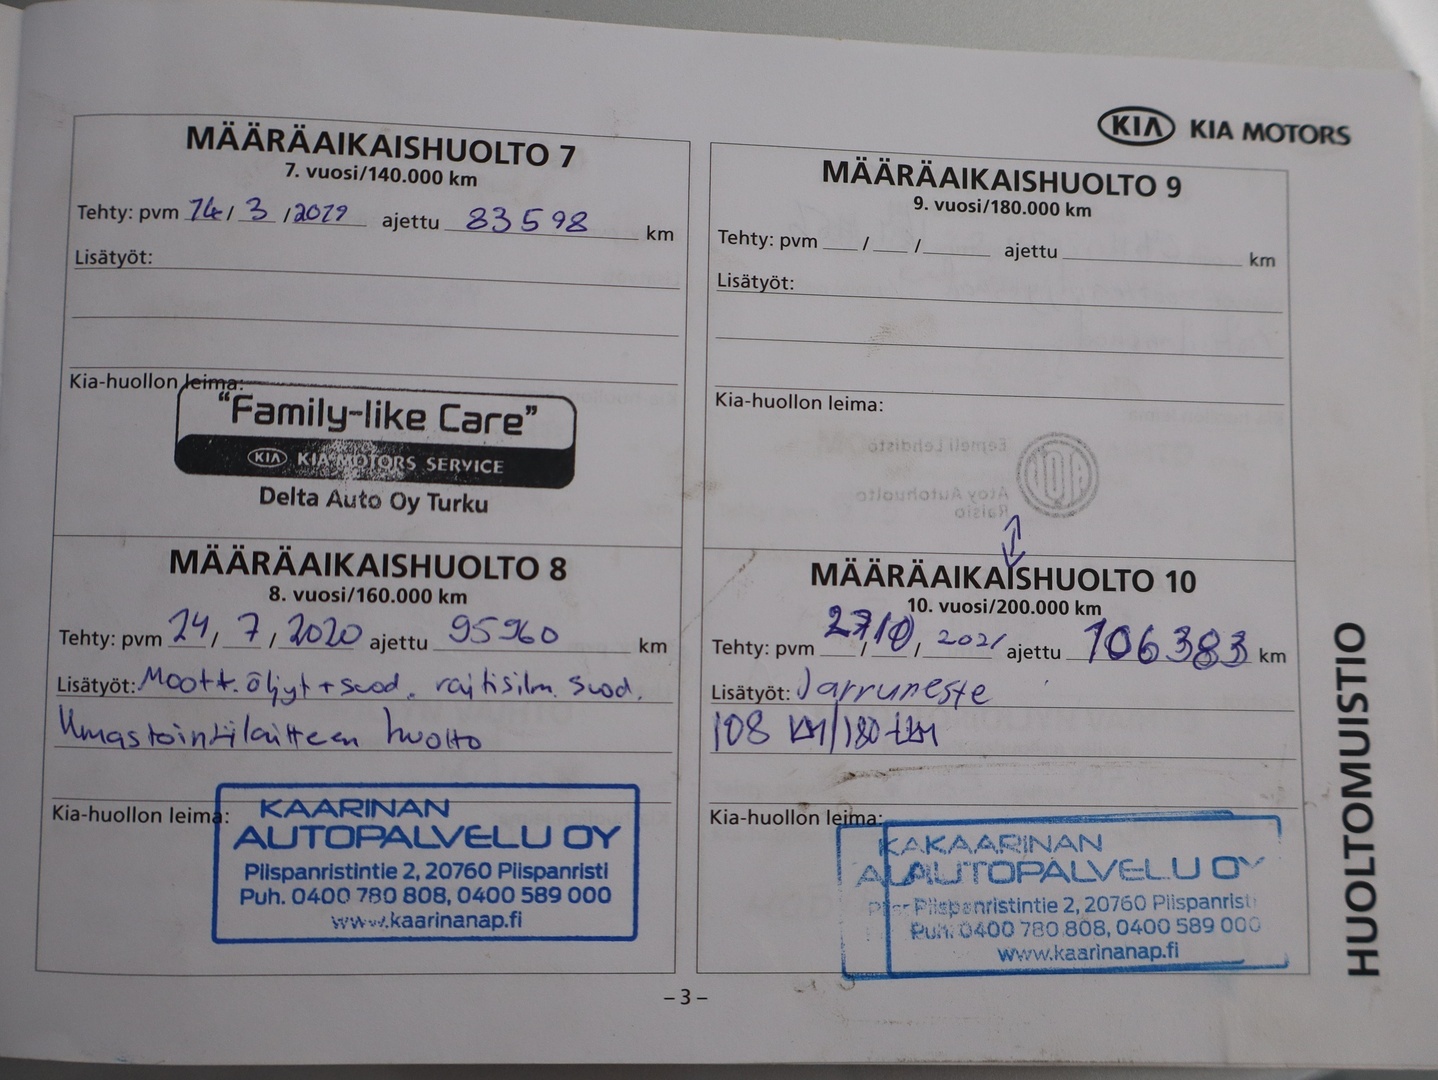 KIA KIA MOTORS
MÄÄRÄAIKAISHUOLTO 7
7. vuosi/140.000 km
Tehty: pvm 14/3/2019 ajettu 83598 km
Lisätyöt:
Kia-huollon leima:
"Family-like Care"
KIA KIA MOTORS SERVICE
Delta Auto Oy Turku
MÄÄRÄAIKAISHUOLTO 8
8. vuosi/160.000 km
Tehty: pvm 24/7/2020 ajettu 95960 km
Lisätyöt: Moott. öljyt + suod. raitisilm. suod.
Ilmastointilaitteen huolto
Kia-huollon leima:
KAARINAN
AUTOPALVELU OY
Piispanristintie 2, 20760 Piispanristi
Puh. 0400 780 808, 0400 589 000
www.kaarinanap.fi
MÄÄRÄAIKAISHUOLTO 9
9. vuosi/180.000 km
Tehty: pvm / / ajettu km
Lisätyöt:
Kia-huollon leima:
Eemeli Lehdistö
Atoy Autohuolto
Raisio
MÄÄRÄAIKAISHUOLTO 10
10. vuosi/200.000 km
Tehty: pvm 27/10/2021 ajettu 106383 km
Lisätyöt: Jarruneste
Kia-huollon leima:
KAARINAN
AUTOPALVELU OY
Piispanristintie 2, 20760 Piispanristi
Puh. 0400 780 808, 0400 589 000
www.kaarinanap.fi
HUOLTOMUISTIO
– 3 –